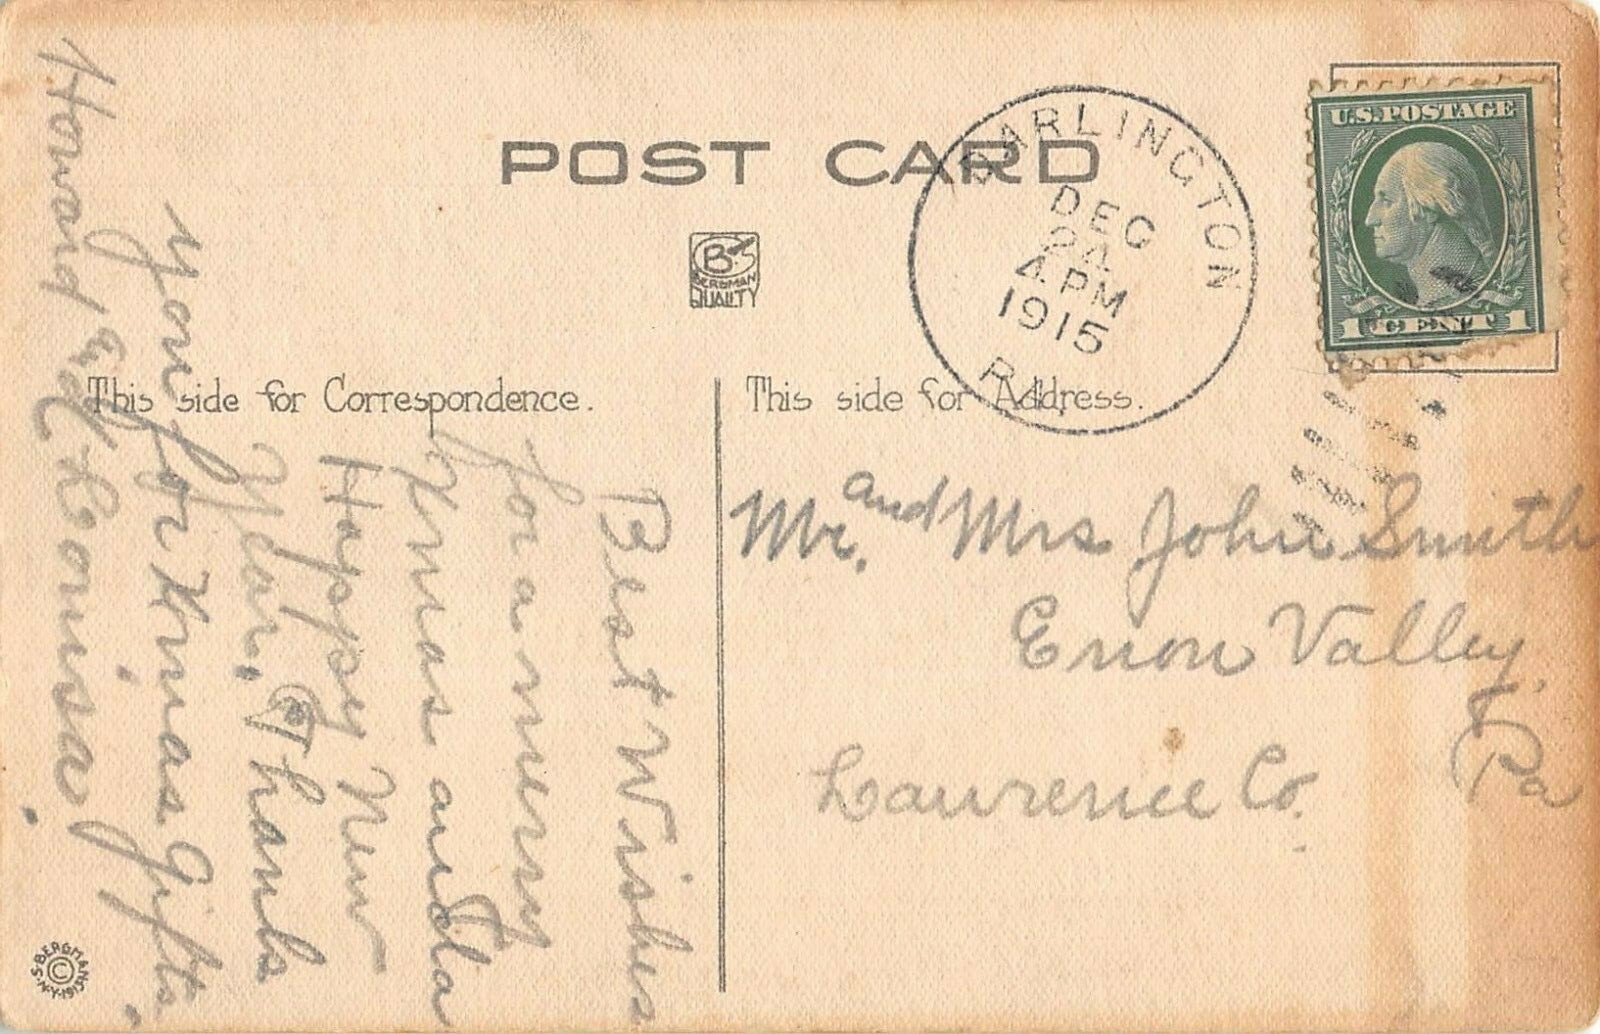 POST CARD
B S
BERGMAN
QUALITY
DARLINGTON
DEC
24
4 PM
1915
U.S. POSTAGE
1 CENT 1
This side for Correspondence.
This side for Address.
Mr. and Mrs John Smith
Enon Valley
Pa
Lawrence Co.
Best Wishes
for a merry
Xmas and a
Happy New
Year. Thanks
you for Xmas Gifts.
Howard and Louisa.
S. BERGMAN
N.Y. 1913
©